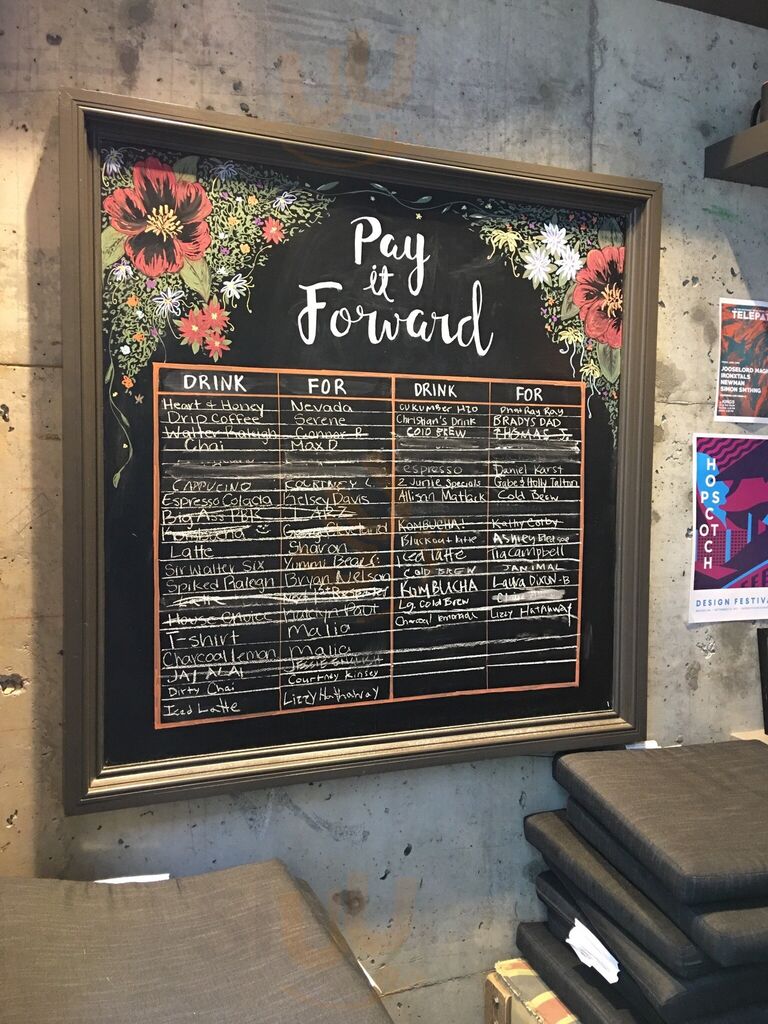 Pay
it
Forward
DRINK FOR DRINK FOR
Heart & Honey Nevada CUKUMBER H2O Ray Ray
Drip Coffee Serene Christian's Drink BRADYS DAD
Walter Raleigh Connor R COLD BREW THOMAS J
Chai Max D
espresso Daniel Karst
CAPPUCINO COURTNEY C. 2 Junie Specials Gabe & Holly Talton
Espresso Colada Kelsey Davis Allison Mattack Cold Brew
Big Ass PBR
KOMBUCHA! Kathy Corby
Latte Sharon Blackout latte Ashley Bledsoe
Sir Walter Six Yummi Bears Iced latte Tia Campbell
COLD BREW JANIMAL
Spiked Ralegh Bryan Nelson KOMBUCHA Laura Dixon-B
Lg. Cold Brew
House Choice Charcoal Lizzy Hathaway
T-shirt Malia
Charcoal Lemon Malia
JAI ALAI JESSIE
Dirty Chai Courtney Kinsey
Iced Latte Lizzy Hathaway
TELEPA
JOOSELORD MAG
IRONXTALS
NEWMAN
SIMON SMTHNG
KINGS
HOPSCOTCH
DESIGN FESTIVA